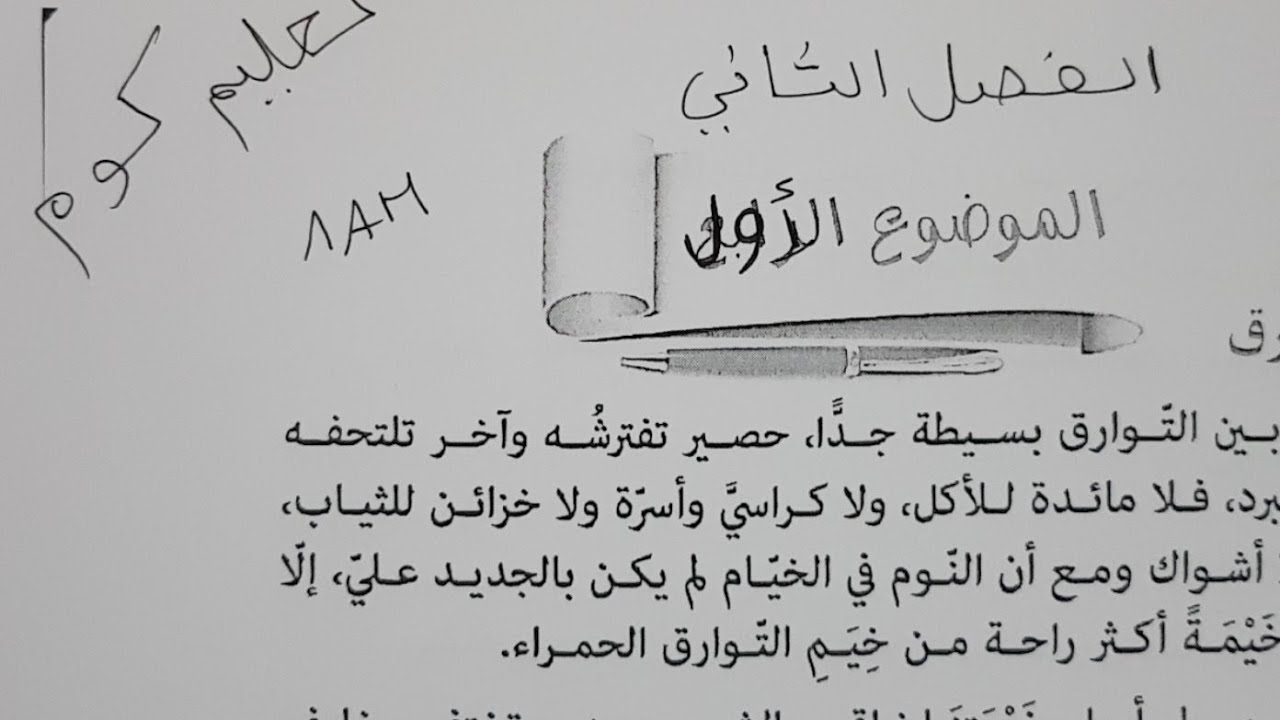 تعليم كوم
8AM
الفصل الثاني
الموضوع الأول
بين التّوارق بسيطة جدًّا، حصير تفترشُه وآخر تلتحفه
فلا مائدة للأكل، ولا كراسيَّ وأسرّة ولا خزائن للثياب،
أشواك ومع أن النّوم في الخيّام لم يكن بالجديد عليّ، إلّا
خَيْمَةً أكثر راحة من خِيَمِ التّوارق الحمراء.